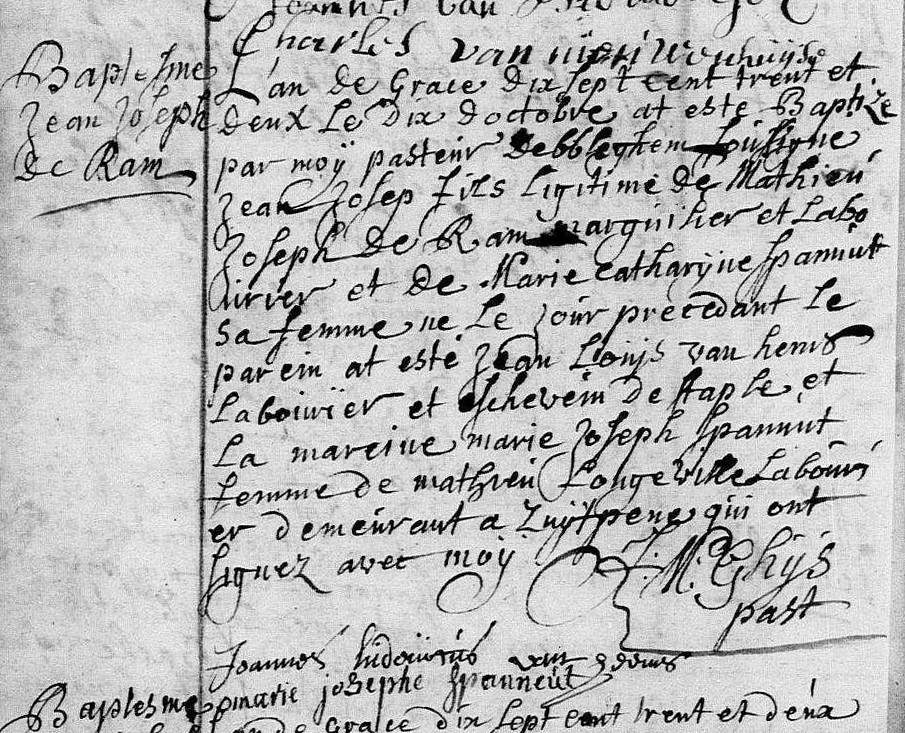 Joannes van
Charles van
Baptesme
Jean Joseph
de Ram
L'an de Grace dix sept cent trent et
deux Le Dix d'octobre at este Baptize
par moÿ pasteur debbleghem soussigne
Jean Josep fils Ligitime de Mathieu
Joseph de Ram marguilier et Labo
urier et de Marie Catharÿne Spannut
sa femme ne Le jour precedant Le
parein at esté Jean Louÿs van hems
Labourier et Eschevein de staple et
La mareine marie Joseph Spannut
femme de mathieu Longeville Labouri
er demeurant a Zuÿtpene qui ont
signez avec moÿ J. M. Ghÿs
past
Joannes ludovicus van
marie josephe Spanneut
Baptesme
L'an de Grace dix sept cent trent et deux